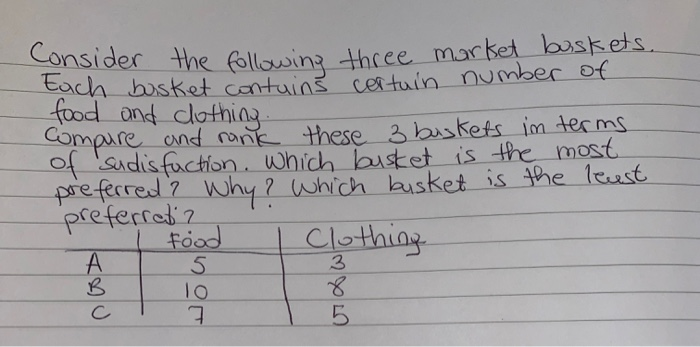 Consider the following three market baskets.
Each basket contains certain number of
food and clothing.
Compare and rank these 3 baskets in terms
of sadisfaction. Which basket is the most
preferred? Why? Which basket is the least
preferred?
Food Clothing
A 5 3
B 10 8
C 7 5